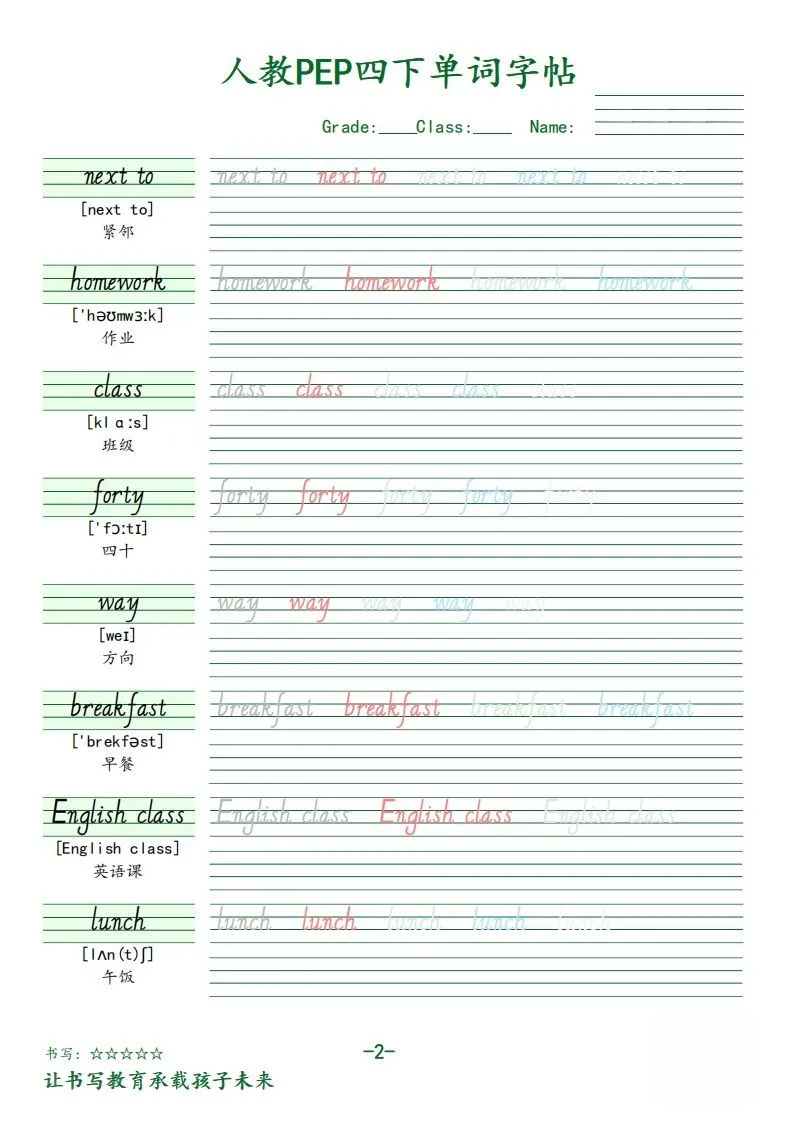 人教PEP四下单词字帖
Grade:____Class:____ Name:
next to next to next to next to next to next to
[next to]
紧邻
homework homework homework homework homework
['həʊmwɜːk]
作业
class class class class class class
[klɑːs]
班级
forty forty forty forty forty forty
['fɔːtɪ]
四十
way way way way way way
[weɪ]
方向
breakfast breakfast breakfast breakfast breakfast
['brekfəst]
早餐
English class English class English class English class
[English class]
英语课
lunch lunch lunch lunch lunch lunch
[lʌn(t)ʃ]
午饭
书写：☆☆☆☆☆
-2-
让书写教育承载孩子未来